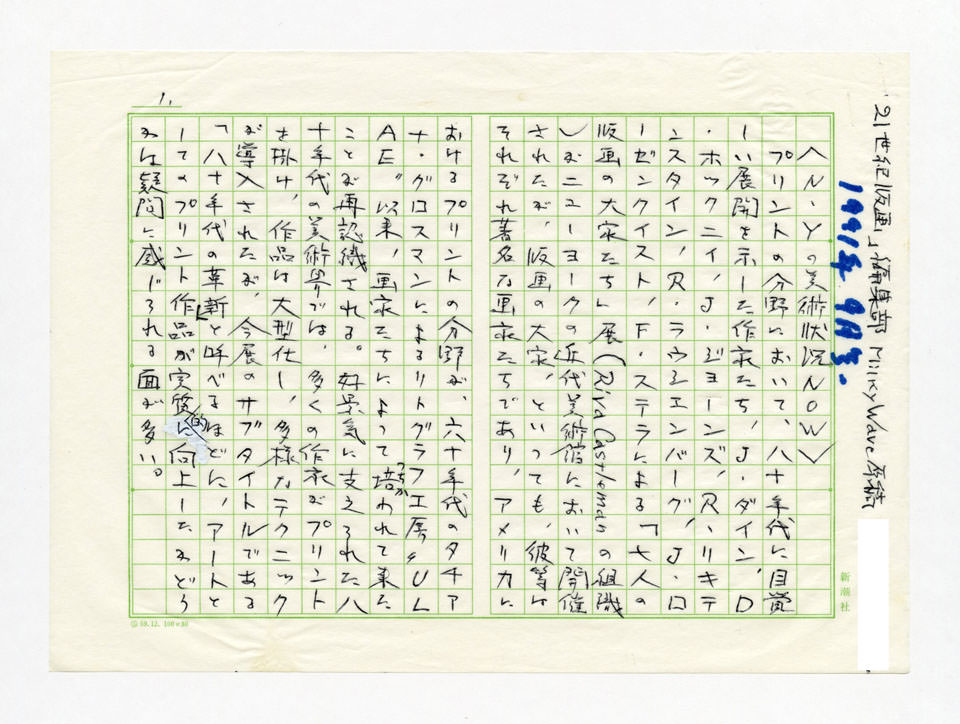 「21世紀版画」編集部 Milky Wave 原稿
1991年 9月号.
〈N・Yの美術状況NOW〉
プリントの分野において、八十年代に目覚
しい展開を示した作家たち、J・ダイン、D
・ホックニィ、J・ジョーンズ、R・リキテ
ンスタイン、R・ラウシェンバーグ、J・ロ
ーゼンクイスト、F・ステラによる「七人の
版画の大家たち」展(Riva Castlemanの組織
)がニューヨークの近代美術館において開催
されたが、版画の大家、といっても、彼等は
それぞれ著名な画家たちであり、アメリカに
おけるプリントの分野が、六十年代のタチア
ナ・グロスマンによるリトグラフ工房〝UL
AE〟以来、画家たちによって培われて来た
つちか
ことが再認識される。好景気に支えられた八
十年代の美術界では、多くの作家がプリント
を掛け、作品は大型化し、多様なテクニック
が導入されたが、今展のサブタイトルである
「八十年代の革新」と呼べるほどに、アートと
してのプリント作品が実質的に向上したかどう
かは疑問に感じられる面が多い。
1.
新潮社
59.12. 100×50